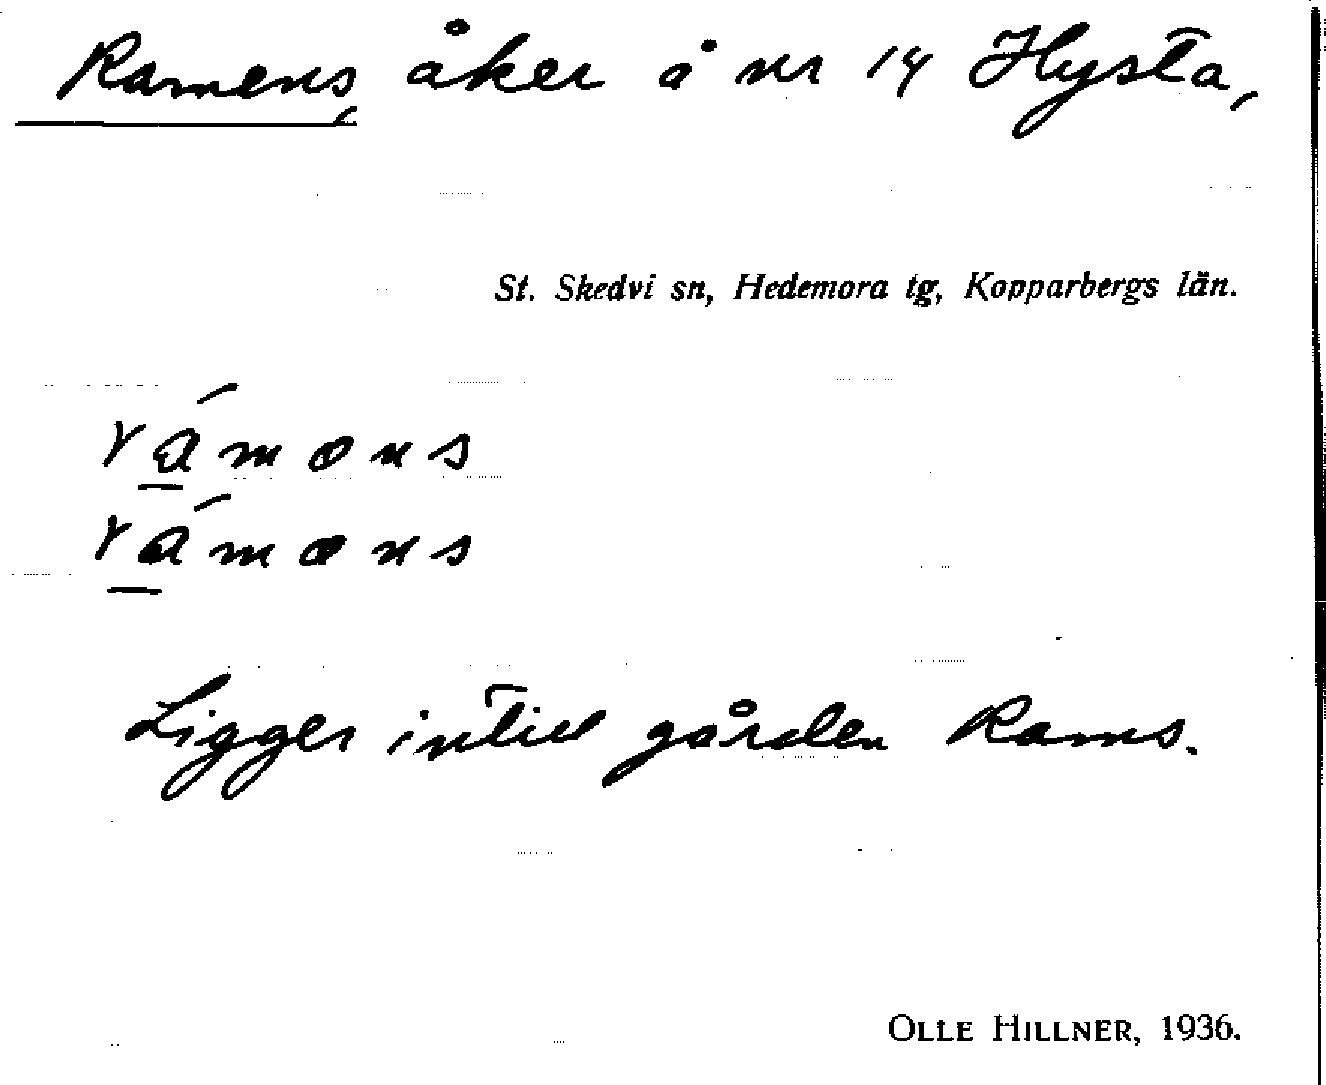 Ramens, åker å nr 14 Hysta,
St. Skedvi sn, Hedemora tg, Kopparbergs län.
rámons
rámɑns
Ligger intill gården Rams.
OLLE HILLNER, 1936.